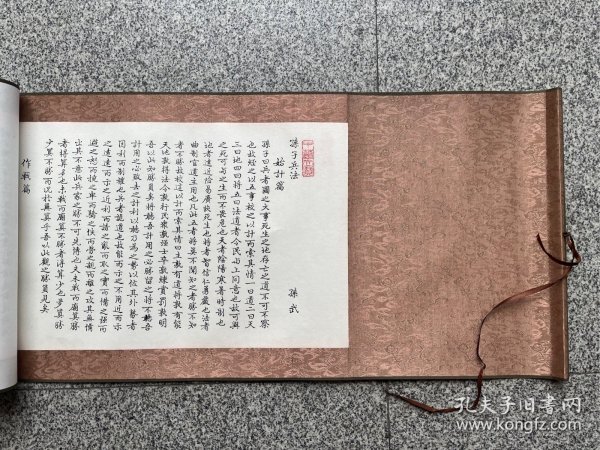 孫子兵法
始計篇
孫武
孫子曰兵者國之大事死生之地存亡之道不可不察
也故經之以五事校之以計而索其情一曰道二曰天
三曰地四曰將五曰法道者令民與上同意也故可與
之死可與之生而不畏危也天者陰陽寒暑時制也
地者遠近險易廣狹死生也將者智信仁勇嚴也法者
曲制官道主用也凡此五者將莫不聞知之者勝不知
者不勝故校之以計而索其情曰主孰有道將孰有能
天地孰得法令孰行兵衆孰強士卒孰練賞罰孰明
吾以此知勝負矣將聽吾計用之必勝留之將不聽吾
計用之必敗去之計利以聽乃爲之勢以佐其外勢者
因利而制權也兵者詭道也故能而示之不用近而示
之遠遠而示之近利而誘之亂而取之實而備之強而
避之怒而撓之卑而驕之佚而勞之親而離之攻其無備
出其不意此兵家之勝不可先傳也夫未戰而廟算勝
者得算多也未戰而廟算不勝者得算少也多算勝
少算不勝而況於無算乎吾以此觀之勝負見矣
作戰篇
孔夫子旧书网
www.kongfz.com